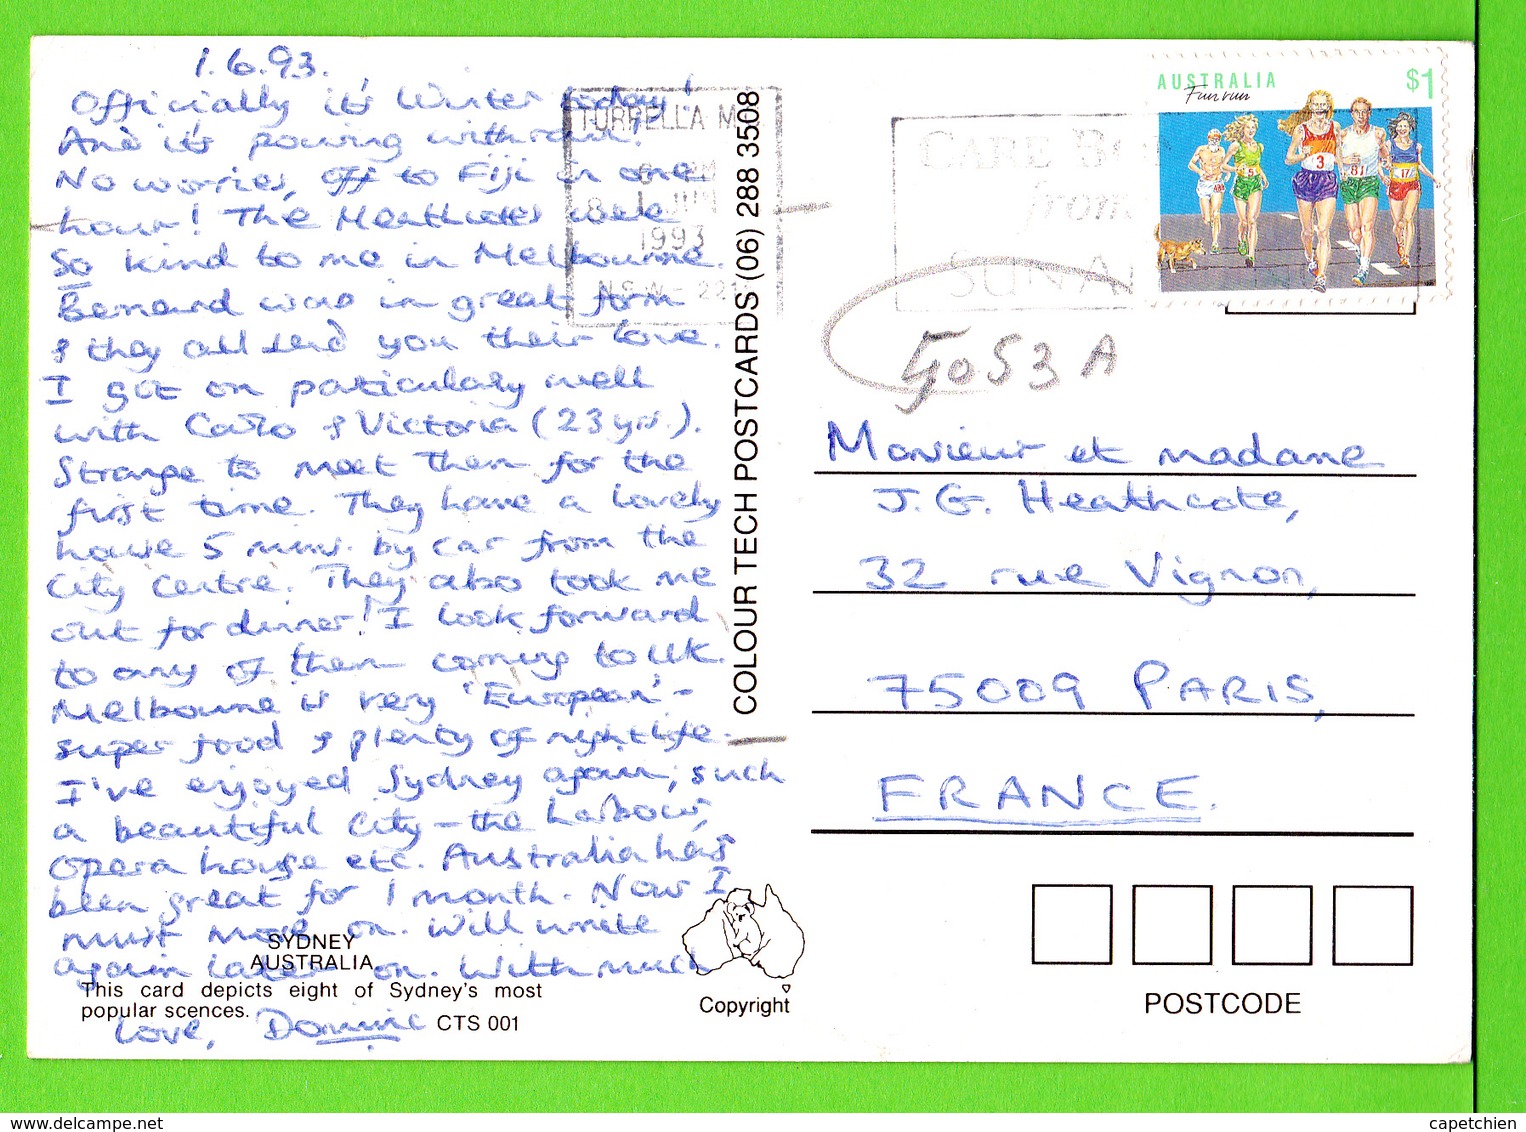 1.6.93.
Officially it's Winter today!
And it's pouring with rain!
No worries, off to Fiji in one
hour! The Heathcotes were
so kind to me in Melbourne.
Bernard was in great form
& they all send you their love.
I got on particularly well
with Carlo & Victoria (23 yrs.).
Strange to meet them for the
first time. They have a lovely
house 5 mins. by car from the
City Centre. They also took me
out for dinner! I look forward
to any of them coming to UK.
Melbourne is very 'European' -
super food & plenty of nightlife.
I've enjoyed Sydney again, such
a beautiful city - the harbour,
Opera house etc. Australia has
been great for 1 month. Now I
must move on. Will write
again later on. With much
love, Dominic
SYDNEY
AUSTRALIA
This card depicts eight of Sydney's most
popular scences.
CTS 001
COLOUR TECH POSTCARDS (06) 288 3508
Copyright
TURRELLA
8
JUN
1993
N.S.W. 22
CARE
from
SUN
AUSTRALIA
$1
Fun run
5
3
81
17
5053A
Monsieur et madame
J.G. Heathcote,
32 rue Vignon,
75009 PARIS,
FRANCE.
POSTCODE
delcampe.net
capetchien